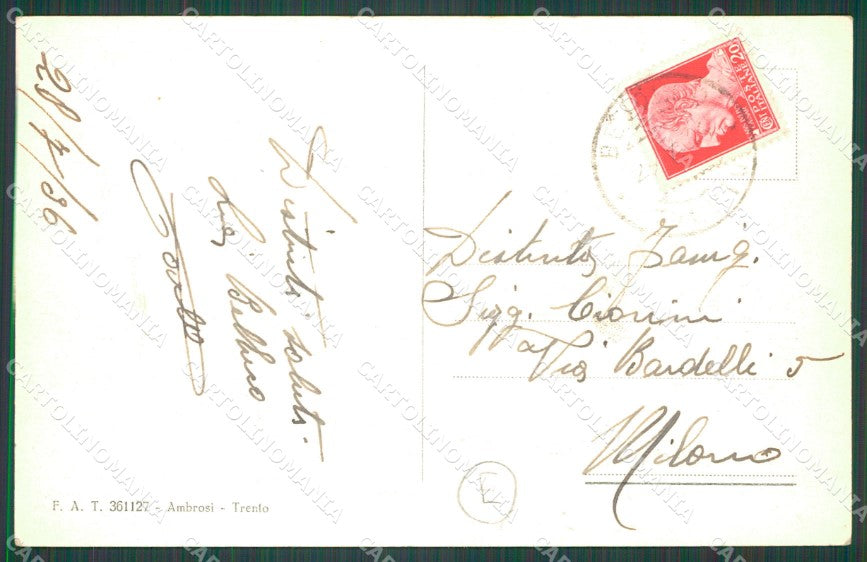 28/7/36
Distinti saluti
Distinta Famig.
Sigg. Ciorini
Via Bardelli 5
Milano
POSTE ITALIANE
20
F. A. T. 361127 - Ambrosi - Trento
CARTOLINOMANIA